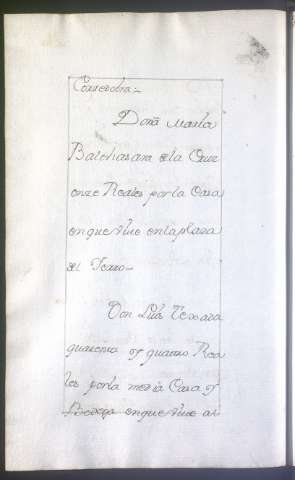 Corredera =
Doña Maria
Balthasara de la Cruz
onze Reales por la Casa
en que vive en la plaza
del =
Don Luis Texada
quarenta y quatro Rea
les por la media Casa y
Bodega en que vive al